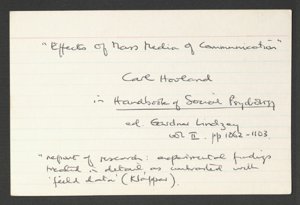 "Effects of Mass Media of Communication"
Carl Hovland
in Handbook of Social Psychology
ed. Gardner Lindzey
vol II. pp 1062-1103.
"report of research: experimental findings
treated in detail as contrasted with
'field data'" (Klapper).